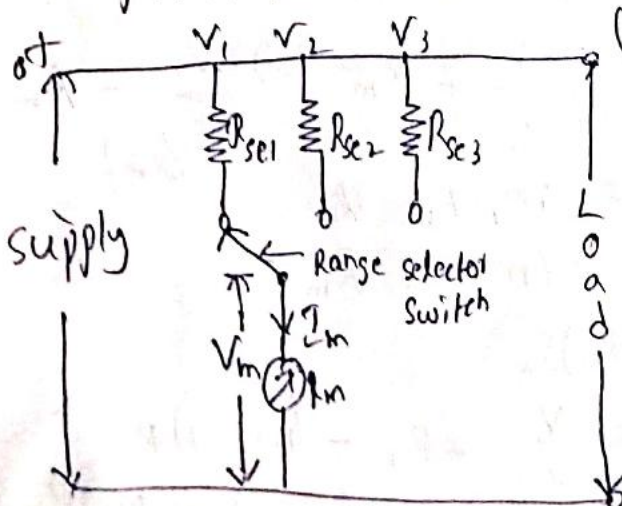 V1 V2 V3
+
Rse1 Rse2 Rse3
supply
Range selector
switch
Im
Vm
Rm
Load